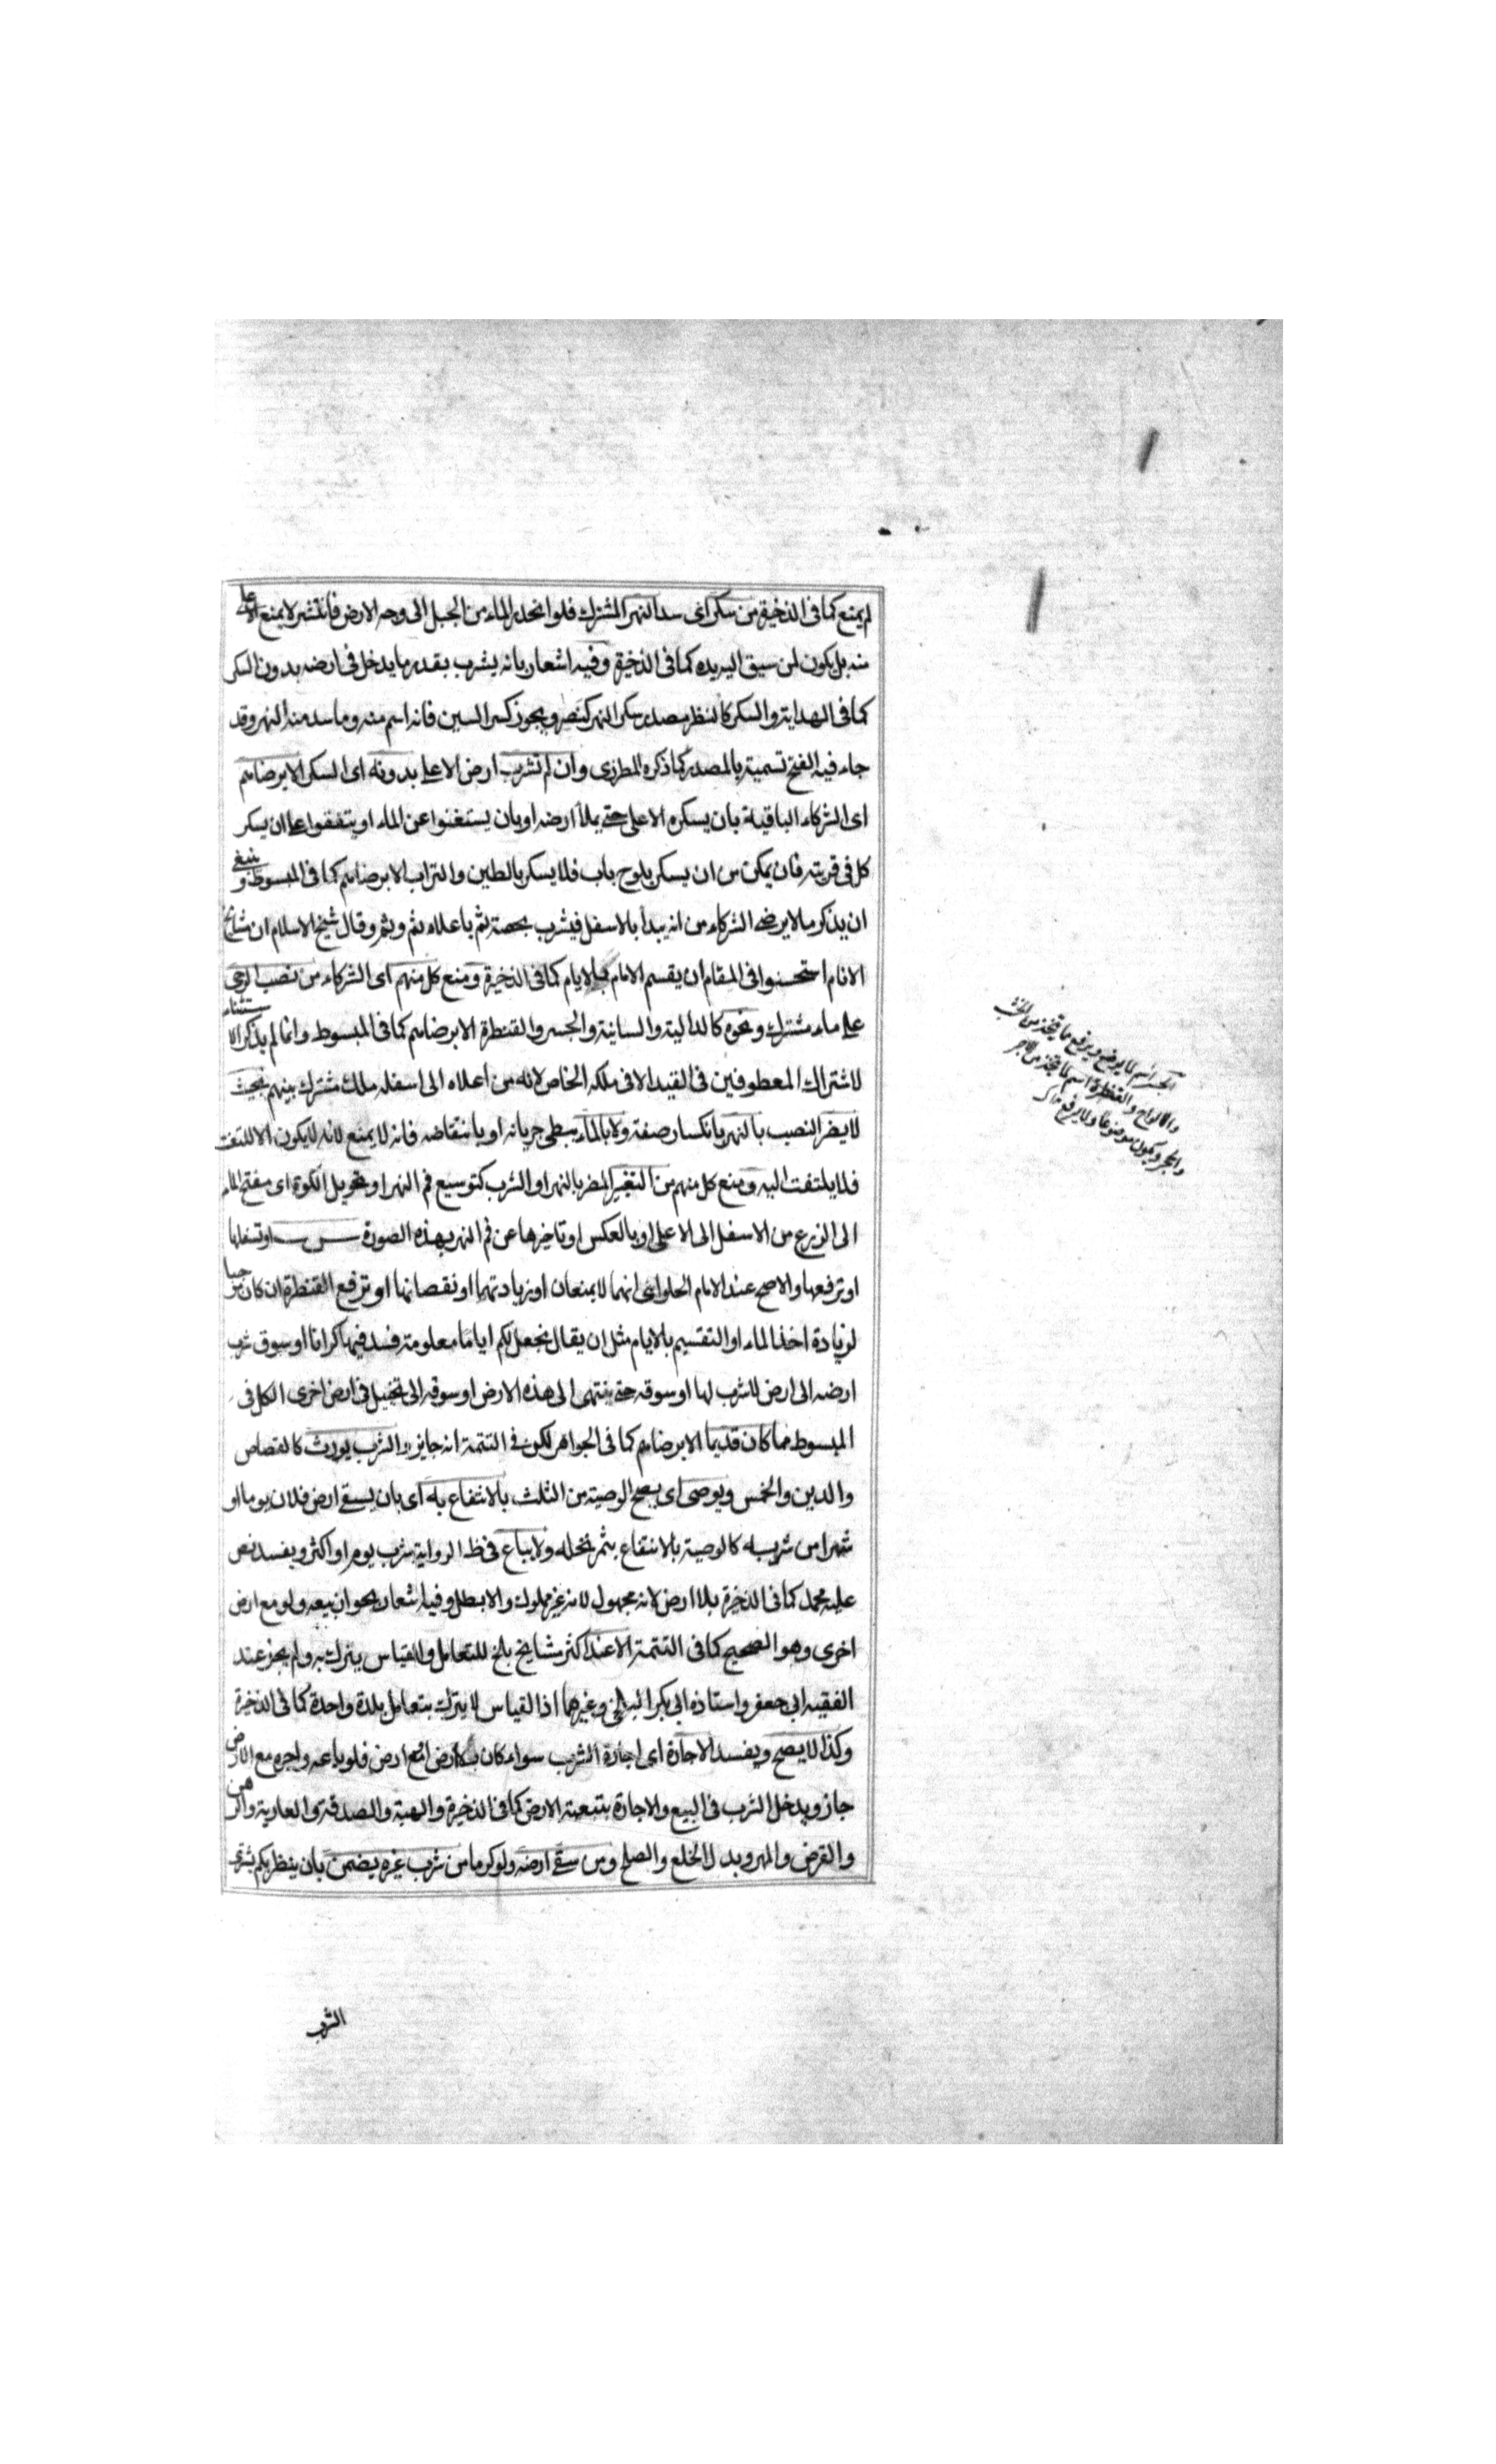 لم يمنع كما في الذخيرة من سكر اى سد النهر المشترك فلو انحدر الماء من الجبل الى وجه الارض فانتشر لا يمنع الاعلى
منه بل يكون لمن سبق اليه يده كما في الذخيرة وفيه اشعار بانه يشرب بقدر ما يدخل في ارضه بدون السكر
كما في الهداية والسكر كالنظر مصدر سكر النهر كنصر ويجوز كسر السين فانه اسم منه وما سد منه النهر وقد
جاء فيه الفتح تسمية بالمصدر كما ذكره المطرزى وان لم تشرب ارض الاعلى بدونه اى السكر الا برضاهم
اى الشركاء الباقية بان يسكره الاعلى حتى يملأ ارضه او بان يستغنوا عن الماء او يتفقوا على ان يسكر
كل في قريته فان يمكن من ان يسكر بلوح باب فلا يسكر بالطين والتراب الا برضاهم كما في المبسوط وينبغى
ان يذكر ما لا يرضى الشركاء من انه يبدأ بالاسفل فيشرب بحصة ثم باعلاه ثم وثم وقال شيخ الاسلام ان مشايخ
الانام استحسنوا في المقام ان يقسم الامام بالايام كما في الذخيرة ومنع كل منهم اى الشركاء من نصب الرحى
على ماء مشترك ونحوه كالدالية والسانية والجسر والقنطرة الا برضاهم كما في المبسوط وانما لم يذكر الاستثناء
لاشتراك المعطوفين في القيد الا في ملكه الخاص لانه من اعلاه الى اسفله ملك مشترك بينهم بحيث
لا يضر النصب بالنهر بانكسار صفته ولا بالماء ببطى جريانه او بانتقاضه فانه لا يمنع لانه لا يكون الا للتعنت
فلا يلتفت اليه ومنع كل منهم من التغيير المضر بالنهر او الشرب كتوسيع فم النهر او تحويل الكوة اى مفتح الماء
الى الزرع من الاسفل الى الاعلى او بالعكس او تاخيرها عن فم النهر بهذه الصورة او تسفلها
او ترفعها والاصح عند الامام الحلوائى انهما لا يمنعان او زيادتهما او نقصانها او ترفع القنطرة ان كان موجبا
لزيادة اخذ الماء او التقسيم بالايام مثل ان يقال نجعل لكم اياما معلومة فسد فيها كرانا او سوق شرب
ارضه الى ارض لا شرب لها او سوقه حتى ينتهى الى هذه الارض او سوقه الى نخيل في ارض اخرى الكل في
المبسوط مما كان قديما الا برضاهم كما في الجواهر لكن في التتمة انه جايز والشرب يورث كالقصاص
والدين والخمس ويوصى اى يصح الوصية من الثلث بالانتفاع به اى بان يسقى ارض فلان يوما او
شهرا من شربه كالوصية بالانتفاع بثمر نخله ولا يباع في ظ الرواية شرب يوم او اكثر ويفسد نص
عليه محمد كما في الذخيرة بلا ارض لانه مجهول لانه غير مملوك والا بطل وفيه اشعار بجواز بيعه ولو مع ارض
اخرى وهو الصحيح كما في التتمة الا عند اكثر مشايخ بلخ للتعامل والقياس يترك به ولم يجز عند
الفقيه ابى جعفر واستاذه ابى بكر البلخى وغيرهما اذ القياس لا يترك بتعامل بلدة واحدة كما في الذخيرة
وكذا لا يصح ويفسد الاجارة اى اجارة الشرب سواء كان بلا ارض ام مع ارض فلو باعه واجره مع الارض
جاز ويدخل الشرب في البيع والاجارة بتبعية الارض كما في الذخيرة والهبة والصدقة والعارية والرهن
والقرض والمهر وبدل الخلع والصلح ومن سقى ارضه ولو كرما من شرب غيره يضمن بان ينظر بكم يشترى
الجسر اسم لما يوضع ويرفع مما يتخذ من الخشب
والالواح والقنطرة اسم لما يتخذ من الآجر
والحجر ويكون موضوعا ولا يرفع
الشرب